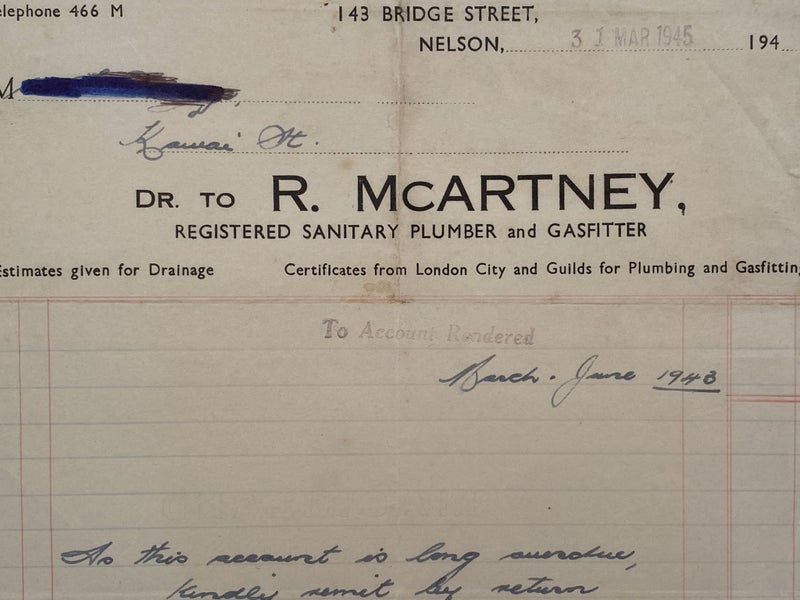 elephone 466 M
143 BRIDGE STREET,
NELSON, 31 MAR 1945 194
M
Kawai St.
DR. TO R. McARTNEY,
REGISTERED SANITARY PLUMBER and GASFITTER
Estimates given for Drainage Certificates from London City and Guilds for Plumbing and Gasfitting
To Account Rendered
March - June 1943
As this account is long overdue,
kindly remit by return